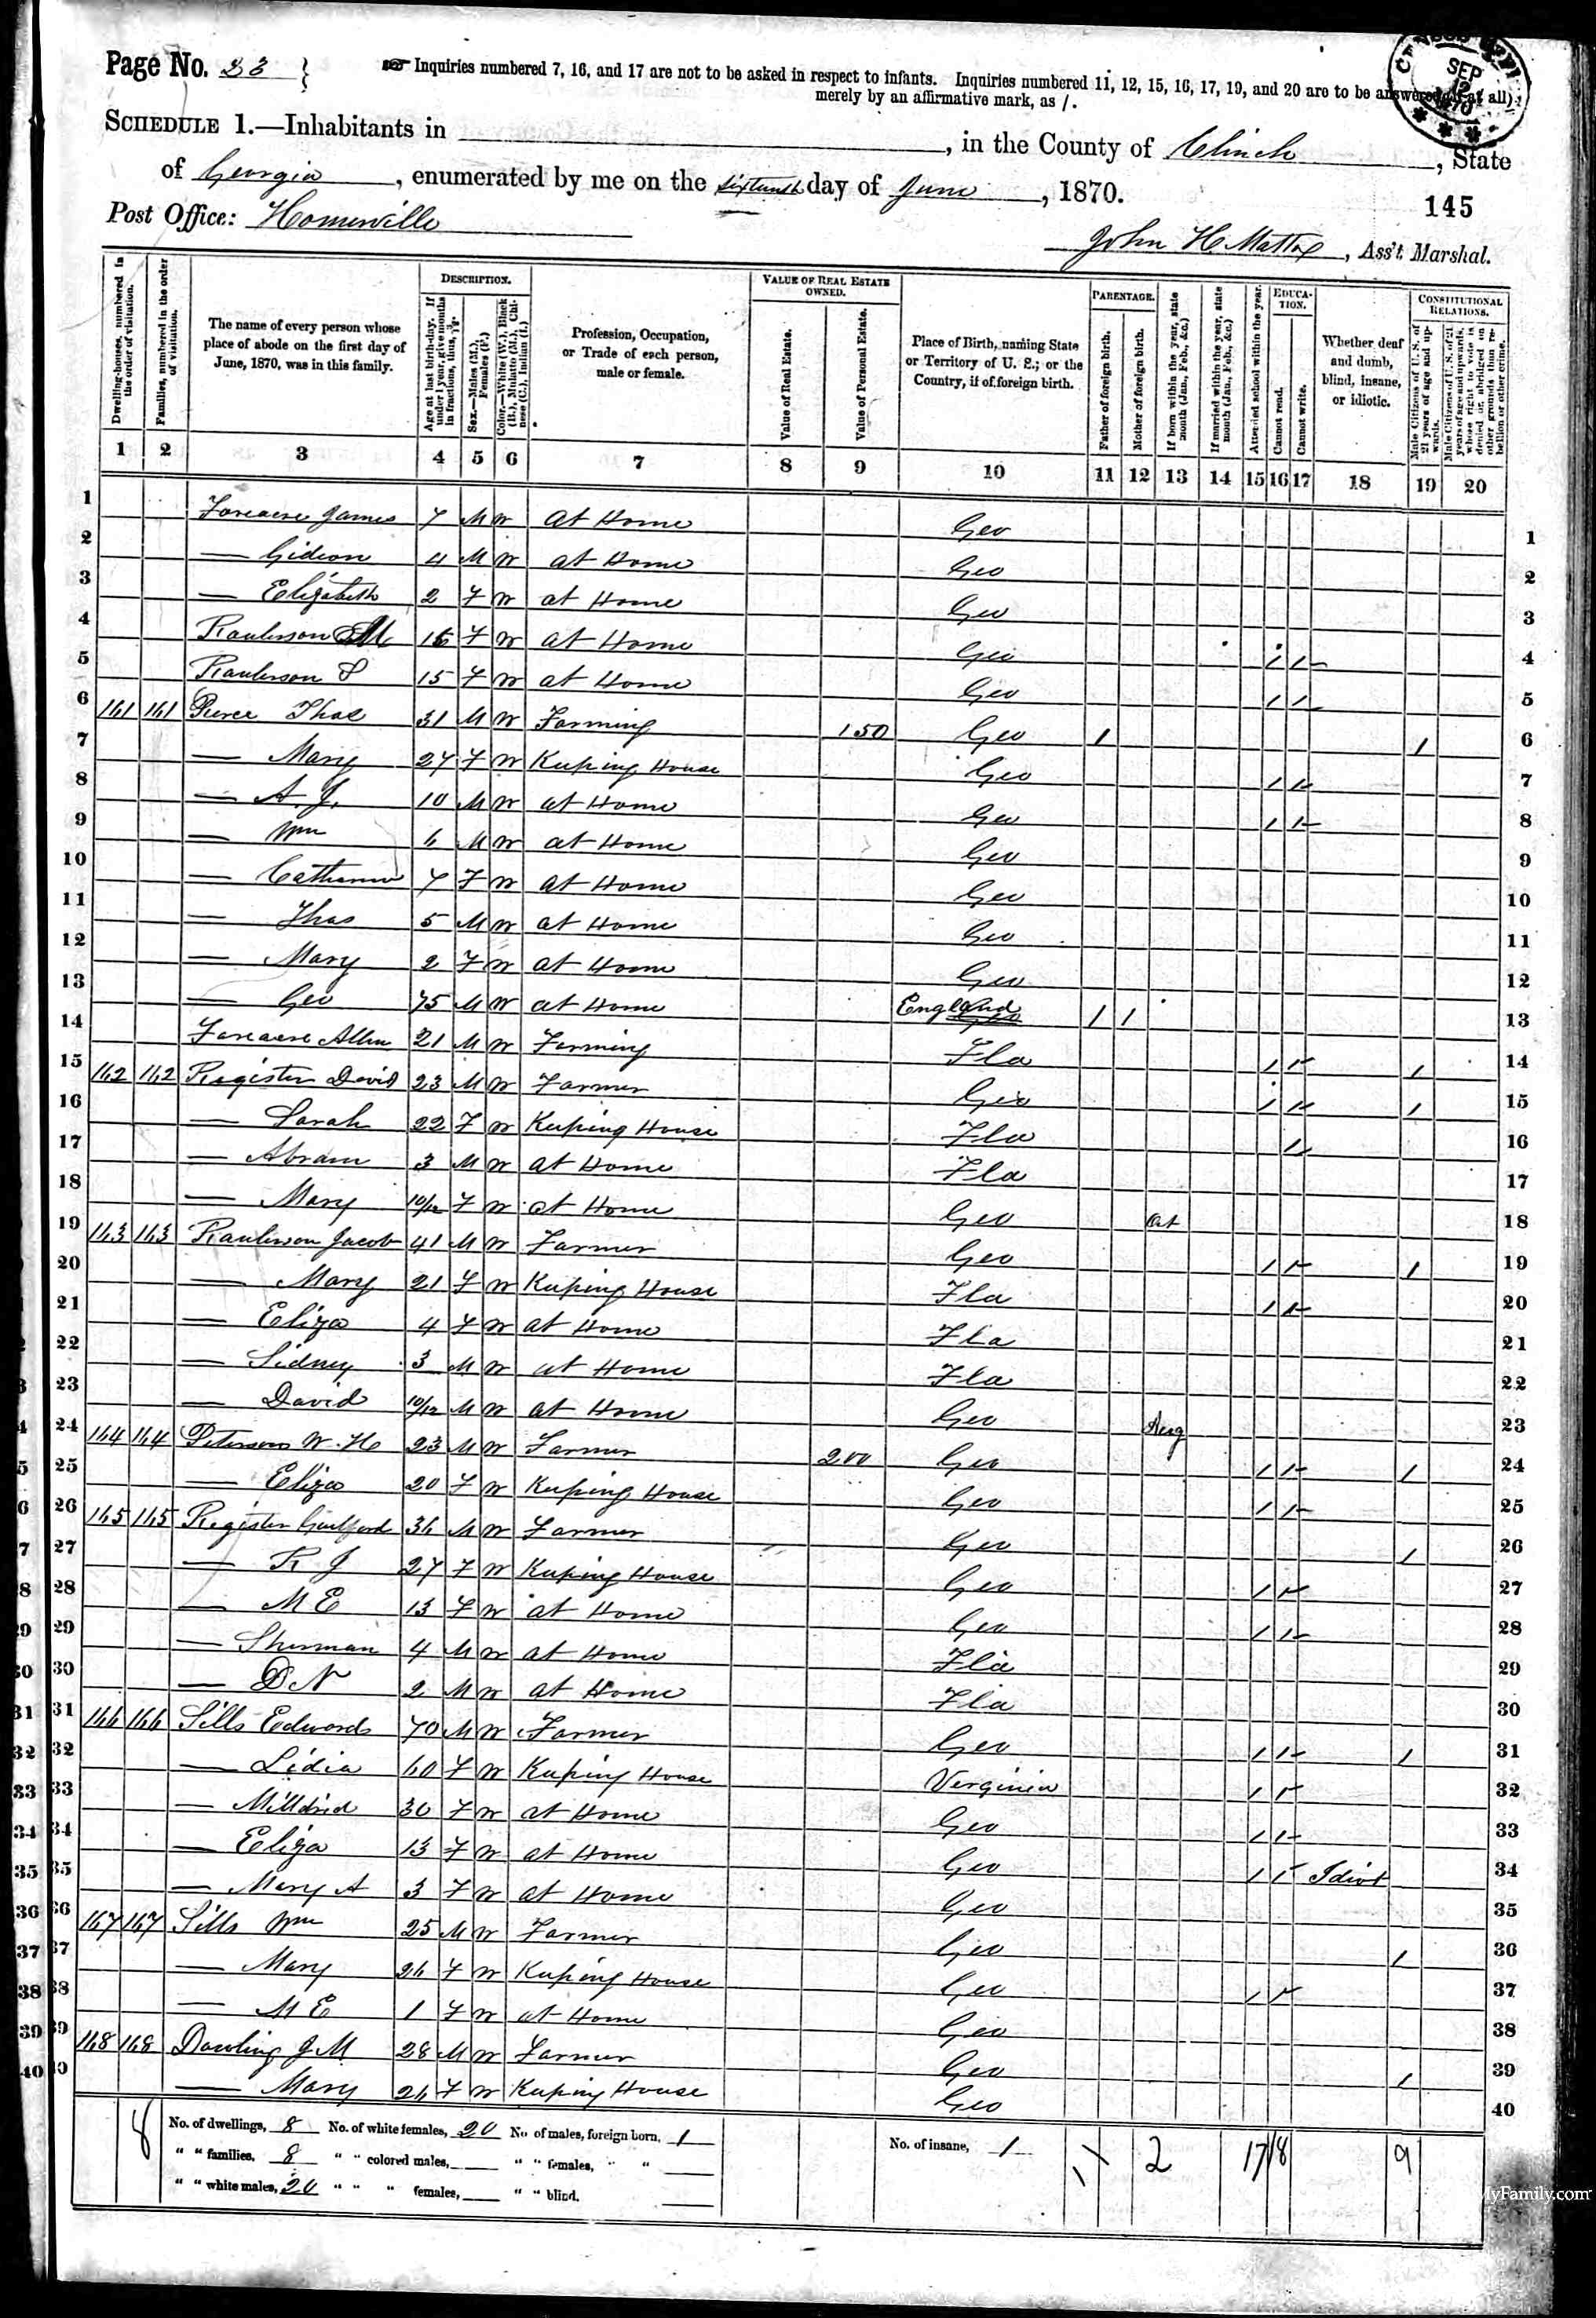 Page No. 23
☞ Inquiries numbered 7, 16, and 17 are not to be asked in respect to infants. Inquiries numbered 11, 12, 15, 16, 17, 19, and 20 are to be answered (if at all)
merely by an affirmative mark, as /.
SEP 12 1870
SCHEDULE 1.—Inhabitants in , in the County of Clinch, State
of Georgia, enumerated by me on the sixteenth day of June, 1870.
145
Post Office: Homerville
John H. Mattox, Ass't Marshal.
Dwelling-houses, numbered in the order of visitation.
Families, numbered in the order of visitation.
The name of every person whose place of abode on the first day of June, 1870, was in this family.
DESCRIPTION.
Age at last birth-day. If under 1 year, give months in fractions, thus, 3/12.
Sex.—Males (M.), Females (F.)
Color.—White (W.), Black (B.), Mulatto (M.), Chinese (C.), Indian (I.)
Profession, Occupation, or Trade of each person, male or female.
VALUE OF REAL ESTATE OWNED.
Value of Real Estate.
Value of Personal Estate.
Place of Birth, naming State or Territory of U. S.; or the Country, if of foreign birth.
PARENTAGE.
Father of foreign birth.
Mother of foreign birth.
If born within the year, state month (Jan., Feb., &c.)
If married within the year, state month (Jan., Feb., &c.)
Attended school within the year.
EDUCATION.
Cannot read.
Cannot write.
Whether deaf and dumb, blind, insane, or idiotic.
CONSTITUTIONAL RELATIONS.
Male Citizens of U. S. of 21 years of age and upwards.
Male Citizens of U. S. of 21 years of age and upwards, whose right to vote is denied or abridged on other grounds than rebellion or other crime.
1 2 3 4 5 6 7 8 9 10 11 12 13 14 15 16 17 18 19 20
1 James 7 M W at Home Geo 1
2 — Gideon 4 M W at Home Geo 2
3 — Elizabeth 2 F W at Home Geo 3
4 Raulerson M 16 F W at Home Geo / / 4
5 Raulerson S 15 F W at Home Geo / / 5
6 161 161 Pierce Thos 31 M W Farming 150 Geo / / 6
7 — Mary 27 F W Keeping House Geo / / 7
8 — A. J. 10 M W at Home Geo / / 8
9 — Wm 6 M W at Home Geo 9
10 — Catharine 7 F W at Home Geo 10
11 — Thos 5 M W at Home Geo 11
12 — Mary 2 F W at Home Geo 12
13 — Geo 75 M W at Home England / / 13
14 Allen 21 M W Farming Fla / / / 14
15 162 162 Register David 23 M W Farmer Geo / / / 15
16 — Sarah 22 F W Keeping House Fla / 16
17 — Abram 3 M W at Home Fla 17
18 — Mary 10/12 F W at Home Geo 18
19 163 163 Raulerson Jacob 41 M W Farmer Geo / / / 19
20 — Mary 21 F W Keeping House Fla / / 20
21 — Eliza 4 F W at Home Fla 21
22 — Sidney 3 M W at Home Fla 22
23 — David 10/12 M W at Home Geo Aug 23
24 164 164 Peterson W. H. 23 M W Farmer 200 Geo / / / 24
25 — Eliza 20 F W Keeping House Geo / / 25
26 165 165 Register Guilford 36 M W Farmer Geo / 26
27 — R J 27 F W Keeping House Geo / / 27
28 — M E 13 F W at Home Geo / / 28
29 — Sherman 4 M W at Home Fla 29
30 — D N 2 M W at Home Fla 30
31 166 166 Sills Edward 70 M W Farmer Geo / / / 31
32 — Lidia 60 F W Keeping House Verginia / / 32
33 — Milldrid 30 F W at Home Geo / / 33
34 — Eliza 13 F W at Home Geo / / Idiot 34
35 — Mary A 3 F W at Home Geo 35
36 167 167 Sills Wm 25 M W Farmer Geo / 36
37 — Mary 26 F W Keeping House Geo / / 37
38 — M E 1 F W at Home Geo 38
39 168 168 Dowling J M 28 M W Farmer Geo / 39
40 — Mary 26 F W Keeping House Geo 40
8 No. of dwellings, 8 No. of white females, 20 No. of males, foreign born, 1 No. of insane, 1 2 17 18 9
" " families, 8 " " colored males, " " females, " "
" " white males, 20 " " " females, " " blind.
MyFamily.com